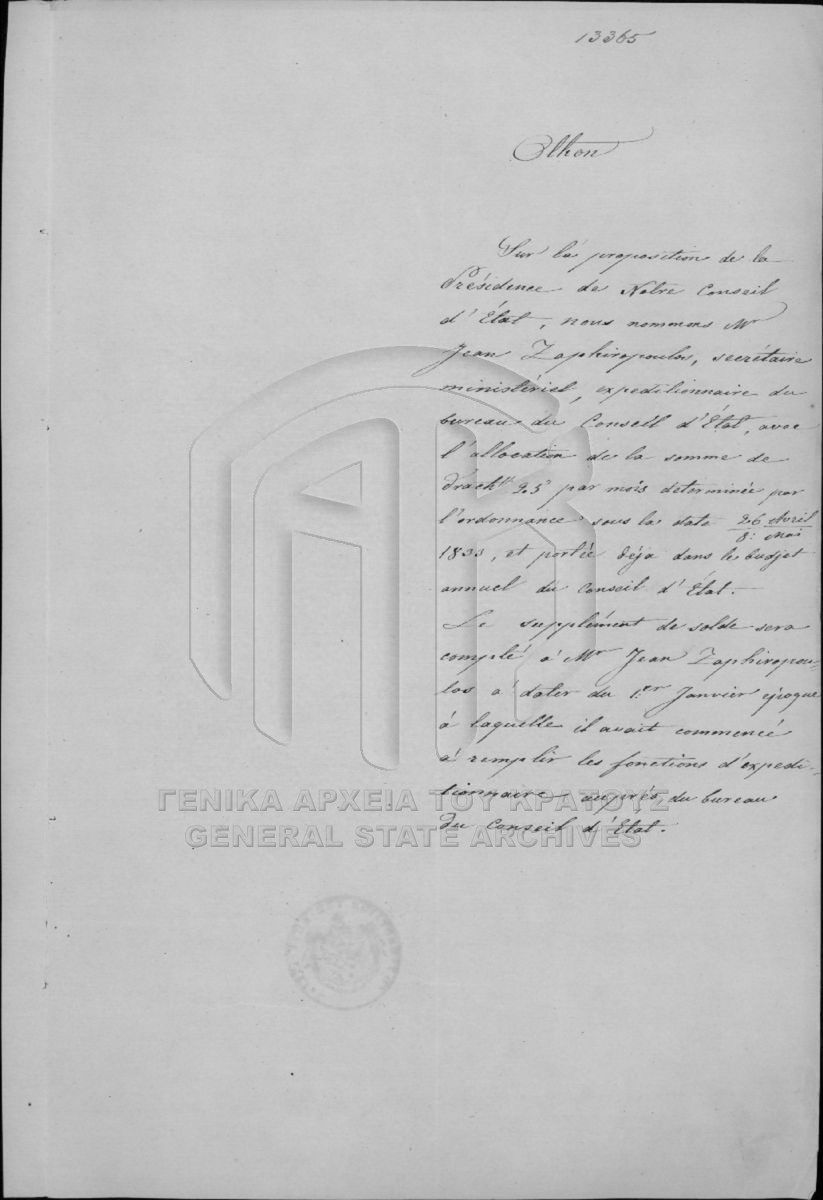 13365
Othon
Sur la proposition de la
Présidence de Notre Conseil
d'État, nous nommons Mr
Jean Zaphiropoulos, secrétaire
ministériel, expeditionnaire du
bureau du Conseil d'État, avec
l'allocation de la somme de
Drach. 25 par mois determinée par
l'ordonnance sous la date 26 Avril
8: Mai
1833, et portée déja dans le budjet
annuel du Conseil d'État.
Le supplément de solde sera
compté à Mr Jean Zaphiropou-
los à dater du 1er Janvier époque
à laquelle il avait commencé
à remplir les fonctions d'expedi-
tionnaire auprès du bureau
du Conseil d'État.
ΓΕΝΙΚΑ ΑΡΧΕΙΑ ΤΟΥ ΚΡΑΤΟΥΣ
GENERAL STATE ARCHIVES